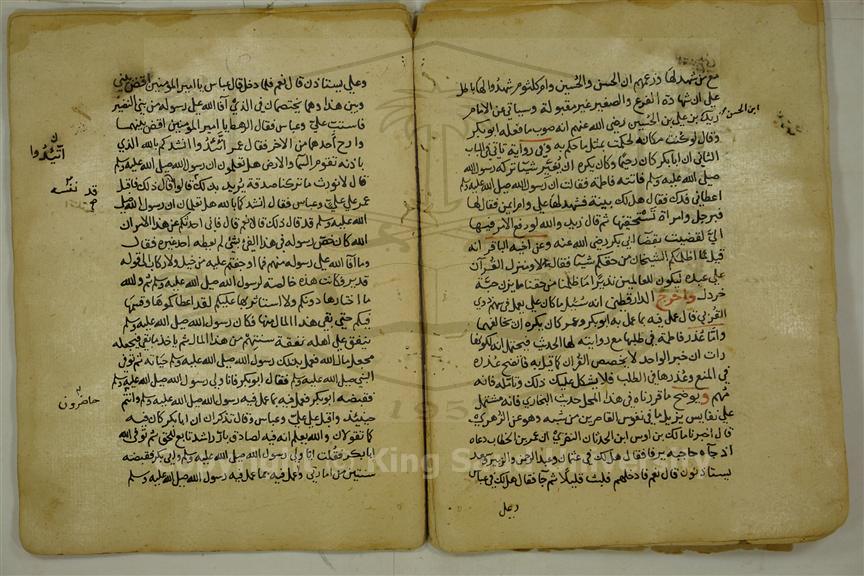 مع من شهد لها وزعمهم ان الحسن والحسين وام كلثوم شهدوا لها باطل
على ان شهادة الفرع والصغير غير مقبولة وسياتي عن الامام
زيد بن علي بن الحسين رضي الله عنهم انه صوب ما فعله ابو بكر
ابن الحسن
وقال لو كنت مكانه لحكمت بمثل ما حكم به وفي رواية تاتي في الباب
الثاني ان ابا بكر كان رحيما وكان يكره ان يغير شيئا تركه رسول الله
صلى الله عليه وسلم فاتته فاطمة فقالت ان رسول الله صلى الله عليه وسلم
اعطاني فدك فقال هل لك بينة فشهد لها علي وام ايمن فقال لها
فبرجل وامراة تستحقيها ثم قال زيد والله لو رفع الامر فيها
الي لقضيت بقضا ابي بكر رضي الله عنه وعن اخيه الباقر انه
قيل له اظلمكم الشيخان من حقكم شيئا فقال لا ومنزل القرآن
على عبده ليكون للعالمين نذيرا ما ظلمنا من حقنا ما يزن حبة
خردل واخرج الدارقطني انه سئل ما كان علي يعمل في سهم ذوي
القربى قال عمل فيه بما عمل به ابو بكر وعمر كان يكره ان يخالفهما
واما عذر فاطمة في طلبها مع روايته لها الحديث فيحتمل انه لكونها
رات ان خبر الواحد لا يخصص القرآن كما قيل به فاتضح عذره
في المنع وعذرها في الطلب فلا يشكل عليك ذلك وتامله فانه
مهم ويوضح ما قررناه في هذا المحل حديث البخاري فانه مشتمل
على نفايس يزيل ما في نفوس القاصرين من شبه وهو عن الزهري
قال اخبرنا مالك بن اوس ابن الحدثان النضري ان عمر بن الخطاب دعاه
اذ جاه حاجبه يرفا فقال هل لك في عثمان وعبد الرحمن والزبير وسعد
يستاذنون قال نعم فادخلهم فلبث قليلا ثم جا فقال هل لك في عباس
وعلي
وعلي يستاذن قال نعم فلما دخل قال عباس يا امير المومنين اقض بيني
وبين هذا وهما يختصمان في الذي آفا الله على رسوله من بني النضير
فاستب علي وعباس فقال الرهط يا امير المومنين اقض بينهما
وارح احدهما من الآخر فقال عمر اتئدوا انشدكم بالله الذي
اتئدوا
باذنه تقوم السما والارض هل تعلمون ان رسول الله صلى الله عليه وسلم
قال لا نورث ما تركنا صدقة يريد بذلك قالوا قد قال ذلك فاقبل
قد
نفسه
عمر على علي وعباس فقال انشدكما بالله هل تعلمان ان رسول الله صلى
الله عليه وسلم قد قال ذلك قالا نعم قال فاني احدثكم عن هذا الامر ان
الله كان خص رسوله في هذا الفي بشي لم يعطه احدا غيره فقال
وما آفا الله على رسوله منهم فما اوجفتم عليه من خيل ولا ركاب الى قوله
قدير فكانت هذه خالصة لرسول الله صلى الله عليه وسلم ثم والله
ما اختارها دونكم ولا استاثر بها عليكم لقد اعطاكموها وقسمها
فيكم حتى بقي هذا المال منها فكان رسول الله صلى الله عليه وسلم
ينفق على اهله نفقة سنتهم من هذا المال ثم ياخذ ما بقي فيجعله
مجعل مال الله فعمل بذلك رسول الله صلى الله عليه وسلم حياته ثم توفي
النبي صلى الله عليه وسلم فقال ابو بكر فانا ولي رسول الله صلى الله عليه وسلم
فقبضه ابو بكر فعمل فيه بما عمل فيه رسول الله صلى الله عليه وسلم وانتم
حاضرون
حينئذ واقبل على علي وعباس وقال تذكران ان ابا بكر كان فيه
كما تقولان والله يعلم انه فيه لصادق بار راشد تابع للحق ثم توفى الله
ابا بكر فقلت انا ولي رسول الله صلى الله عليه وسلم وابي بكر فقبضته
سنتين من امارتي وعمل فيه بما عمل فيه رسول الله صلى الله عليه وسلم
King Saud University
1957